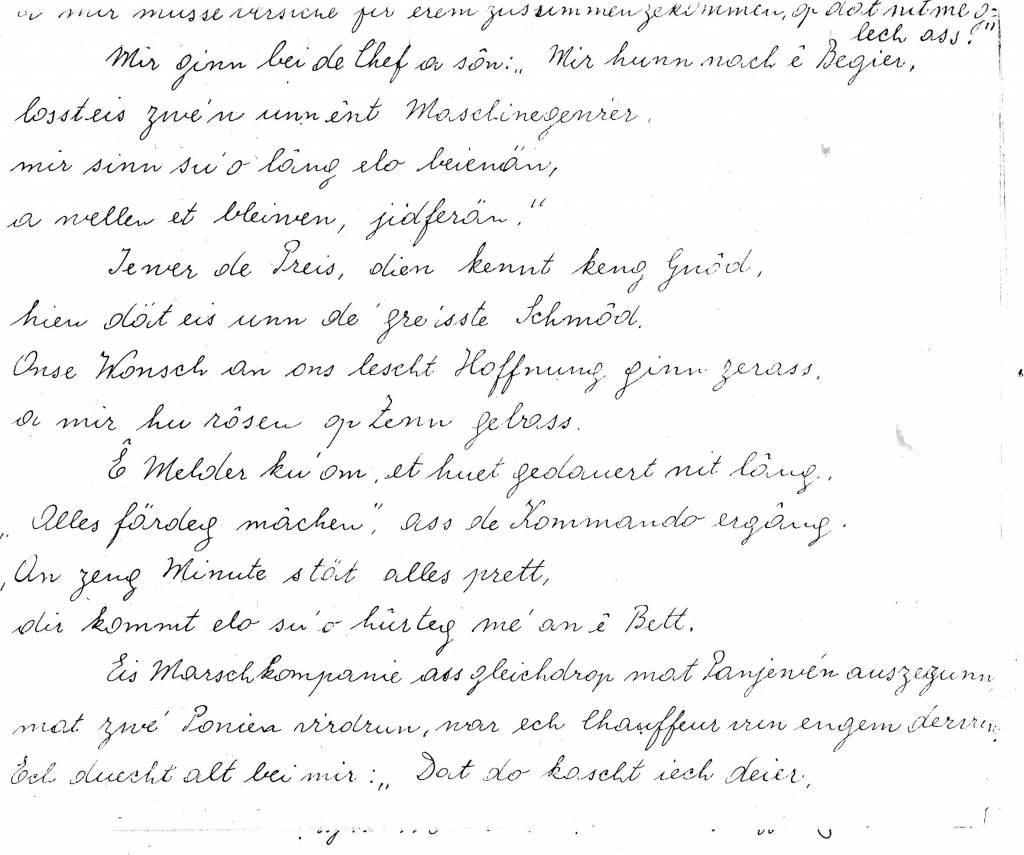 a mir musse versiche fir erem zusummen ze kommen, op dat nit méǵ-
lech ass?"
Mir ginn bei de Chef a sôn: „ Mir hunn nach ê Begier,
losst eis zwé'n unn ênt Maschinegewier,
mir sinn su'o lâng elo beienän,
a wellen et bleiwen, jidferän."
Iewer de Preis, dien kennt keng Gnôd,
hien dät eis unn de' gre'isste Schmôd.
Onse Wonsch an ons lescht Hoffnung ginn zerass,
a mir hu rôsen op Zenn gebass.
Ê Melder ku'om, et huet gedauert nit lâng,
„ Alles färdeg mâchen", ass de Kommando ergâng.
„An zeng Minute stät alles prett,
dir kommt elo su'o hûrteg mé an ê Bett.
Eis Marschkompanie ass gleichdrop mat Panjewén auszezunn,
mat zwé Ponien virdrun, war ech Chauffeur vun engem dervun.
Ech duecht alt bei mir: „ Dat do kascht iech deier,